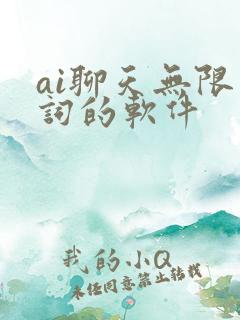 ai聊天無限
詞的軟件
我的小Q
未任同意禁止转载